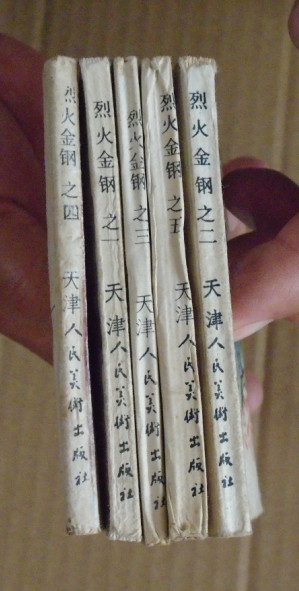 烈火金钢 之四 天津人民美術出版社
烈火金钢 之一 天津人民美術出版社
烈火金钢 之三 天津人民美術出版社
烈火金钢 之五 天津人民美術出版社
烈火金钢 之二 天津人民美術出版社